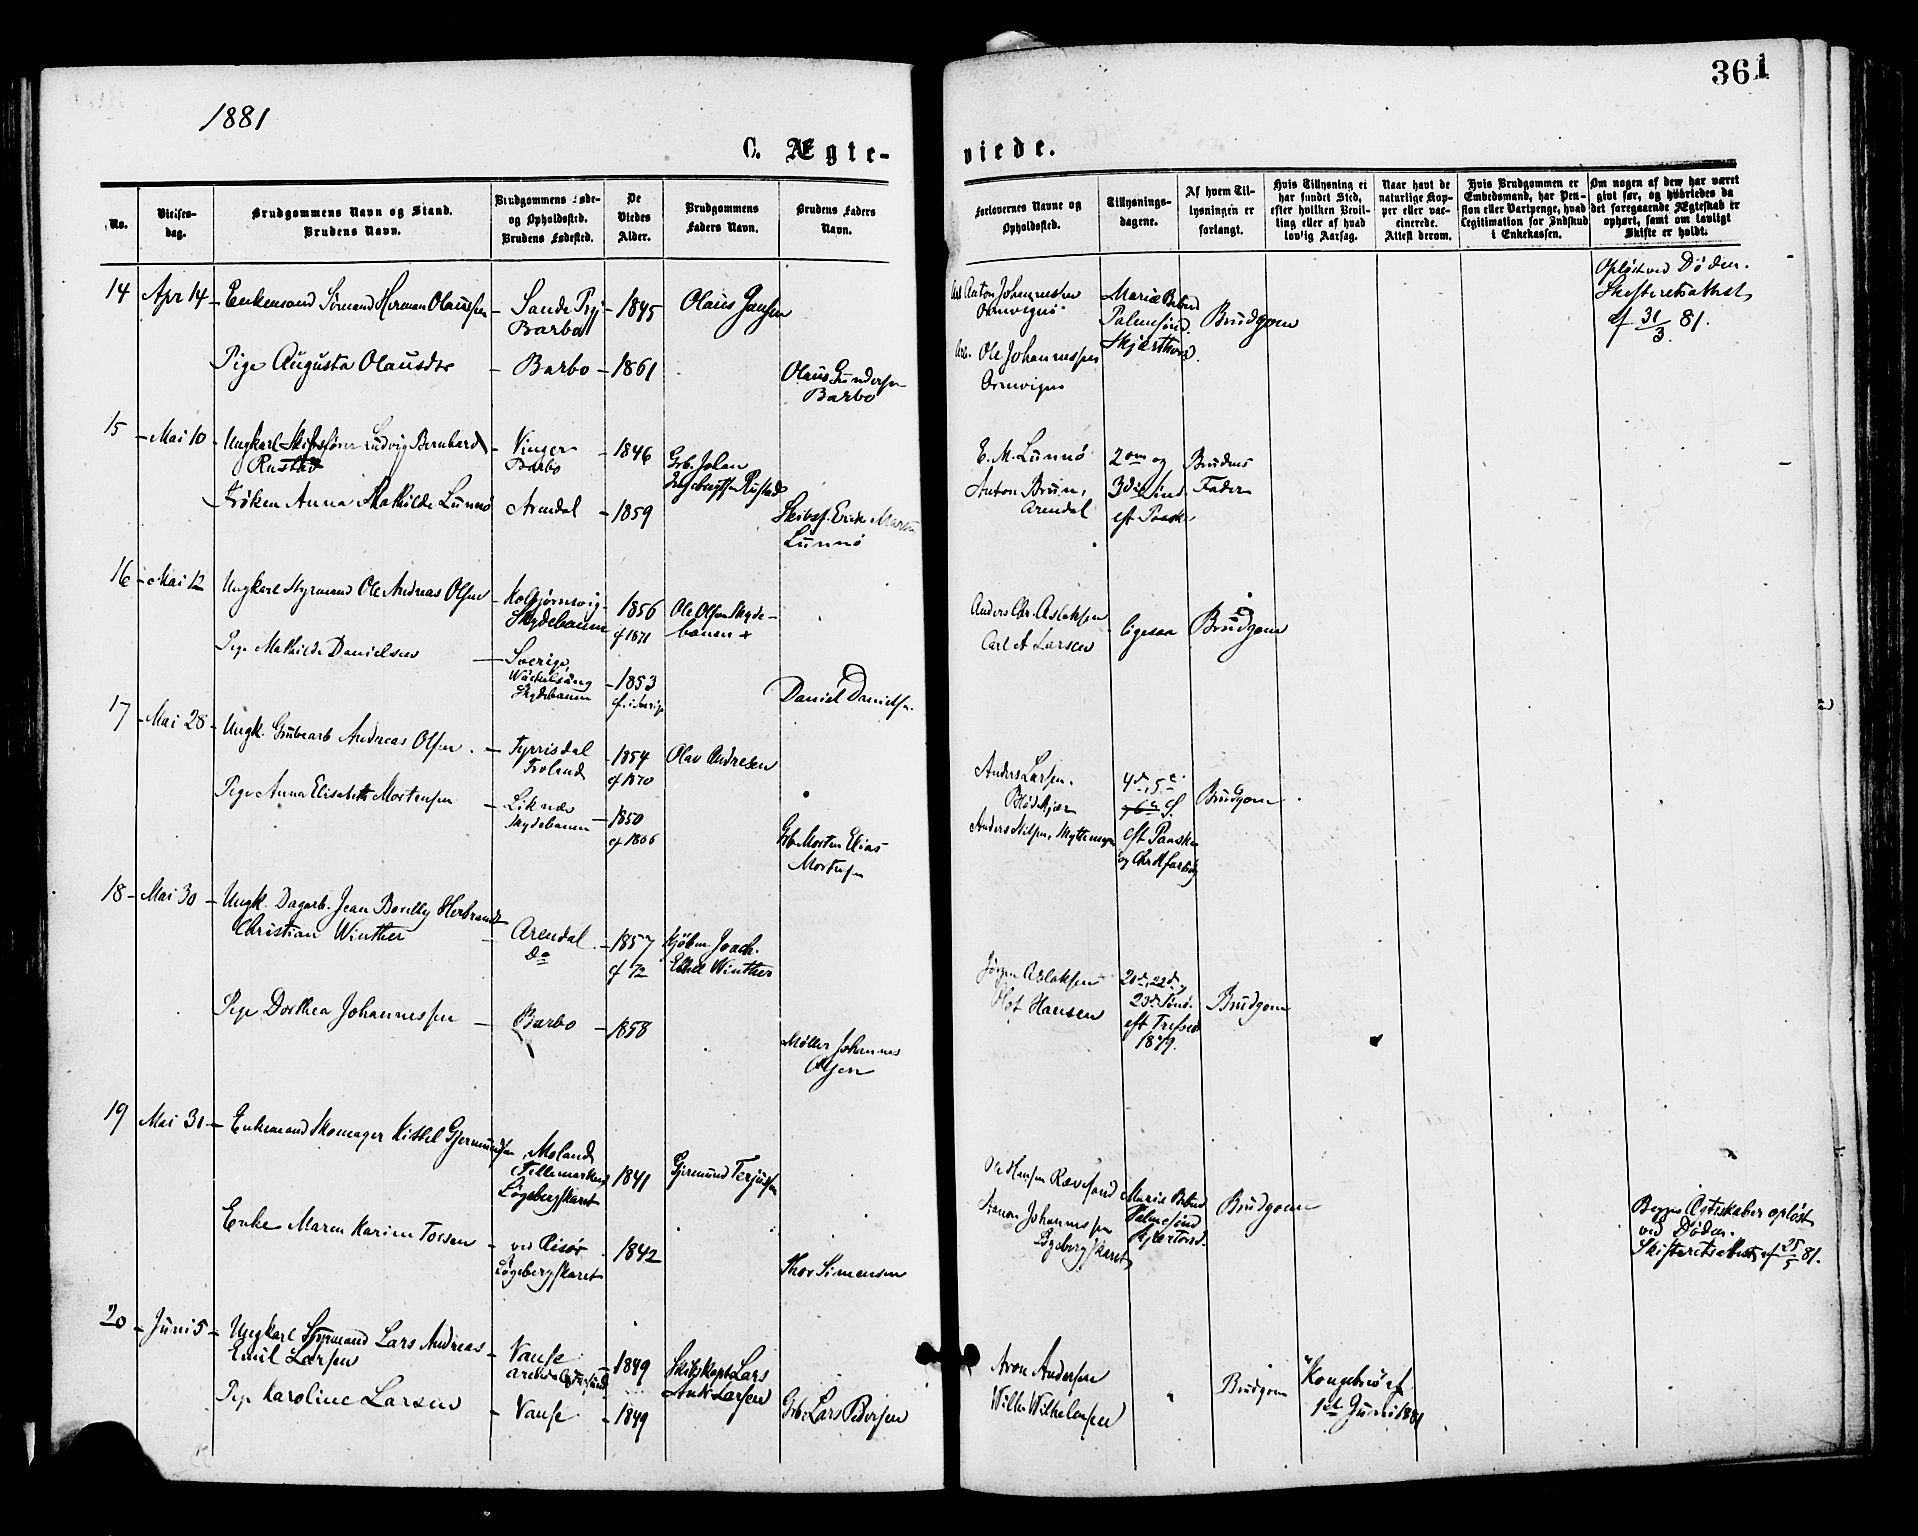 361
1881
C. Ægte-
viede.
No.
Vielses-
dag.
Brudgommens Navn og Stand.
Brudens Navn.
Brudgommens Føde-
og Opholdssted.
Brudens Fødested.
De
Viedes
Alder.
Brudgommens
Faders Navn.
Brudens Faders
Navn.
Forlovernes Navne og
Opholdssted.
Tillysnings-
dagene.
Af hvem Til-
lysningen er
forlangt.
Hvis Tillysning ei
har fundet Sted,
efter hvilken Bevil-
ling eller af hvad
lovlig Aarsag.
Naar havt de
naturlige Kop-
per eller vac-
cinerede.
Attest derom.
Hvis Brudgommen er
Embedsmand, har Pen-
sion eller Vartpenge, hvad
Legitimation for Indskud
i Enkekassen.
Om nogen af dem har været
gift før, og hvorledes da
det foregaaende Ægteskab er
ophørt, samt om lovligt
Skifte er holdt.
14 Apr 14 Enkemand Sømand Herman Olaussen
Sande Prgj
Barbo
1845
Olaus Jansen
Pige Augusta Olausdtr
Barbo
1861
Olaus Gundersen
Barbo
Anton Johannessen
Ole Johannessen
Mariæ Bebud
Palmesønd.
Skjærthorsd.
Brudgom
Opløst ved Døden.
Skifteretsattest
af 31/3 81.
15 Mai 10 Ungkarl Skibsfører Ludvig Bernhard
Rustad
Vinger
Barbo
1846
Grb. Johan
Rustad
Frøken Anna Mathilde Lunnø
Arendal
1859
Skibsf. Erik Martin
Lunnø
E. M. Lunnø
Anton Brun,
Arendal
2den og
3die Sønd.
eft Paaske
Brudens
Fader
16 Mai 12 Ungkarl Styrmand Ole Andreas Olsen
Kolbjørnsvig
Skydebanen
1856
cf 1871
Ole Olsen Skyde-
banen +
Pige Mathilde Danielsen
Sverige
Skydebanen
1853
Daniel Danielsen
Anders Chr. Aslaksen
Carl A Larsen
ligesaa
Brudgom
17 Mai 28 Ungk. Grubearb Andreas Olsen
Tyrrisdal
Froland
1854
cf 1870
Olav Andresen
Pige Anna Elisabeth Mortensen
Liknæs
Skydebanen
1850
cf 1866
Grb. Morten Elias
Mortensen
Anders Larsen
Blødekjær
Anders Nilsen, Myttemyren
4de, 5te
6te S.
eft Paaske
og Chr Hfartsdg
Brudgom
18 Mai 30 Ungk. Dagarb. Jean Borelly Herbrandt
Christian Winther
Arendal
Do
1857
cf 72
Kjøbm Joach.
Winther
Pige Dorthea Johannessen
Barbo
1858
Møller Johannes
Olsen
Jørgen Aslaksen
Olof Hansen
23de Sønd.
eft Trefold
1879.
Brudgom
19 Mai 31 Enkemand Skomager Kittel Gjermundsen
Moland
Tellemarken
Løgebergskaret
1841
Gjermund Terjusen
Enke Maren Karine Torsen
ved Risør
Løgebergskaret
1842
Thor Simensen
Ole Hansen Rævesand
Johannessen
Løgebergskaret
Mariæ Bebud
Palmesønd
Skjærtorsd.
Brudgom
Begges Ægteskaber opløst
ved Døden.
Skifteretsattest af 25/5 81.
20 Juni 5 Ungkarl Styrmand Lars Andreas
Emil Larsen
Vanse
1849
Skibskapt Lars
Ant. Larsen
Pige Karoline Larsen
Vanse
1849
Grb. Lars Pedersen
Aron Andersen
Wilh. Wilhelmsen
Brudgom
Kongebrev af
1st Juni 1881